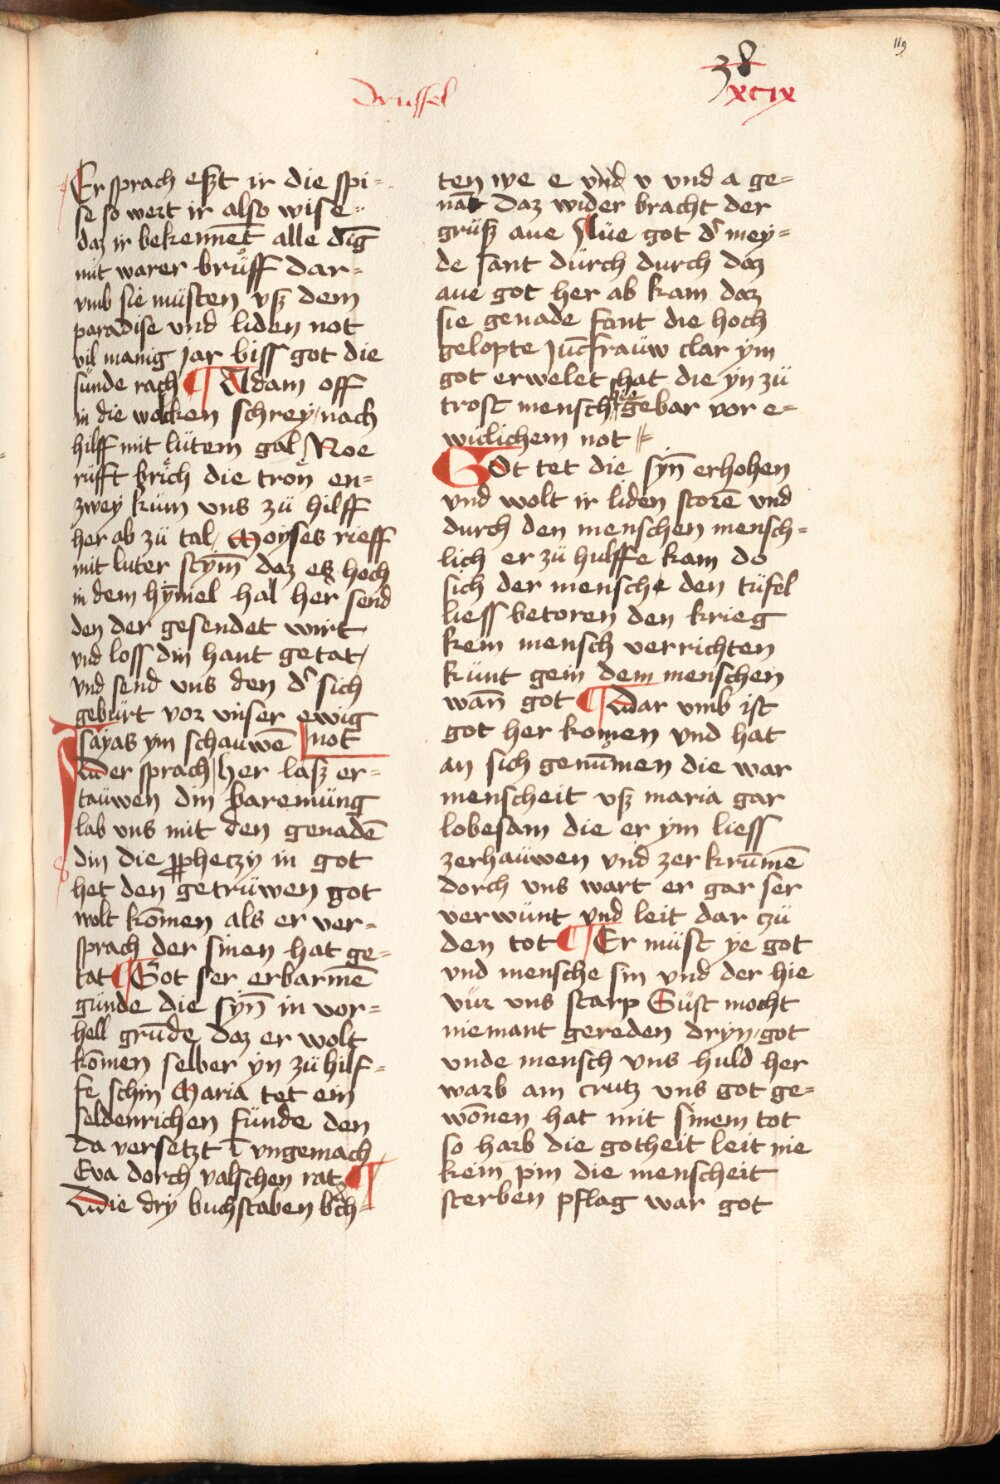 119
38
xcix
Drussel
Er sprach eszt ir die spi-
se so wert ir also wise
daz ir bekennēt alle dīg
mit warer brüff dar-
vmb sie müsten vsz dem
paradise vnd liden not
vil manig jar biss got die
sünde rach ¶ Adam off
in die wolcken schrey / nach
hilff mit lütem gal / Noe
rüfft brich die tron en-
zwey kum vns zü hilff
her ab zü tal / Moyses rieff
mit luter stym̄ daz es hoch
in dem hȳmel hal her send
den der gesendet wirt
vnd loss din hant getat /
vnd send vns den d' sich
gebürt vor vnser ewig
not
Isayas ym schauwē
wer sprach / her lasz er-
tauwen din baremüng
lab vns mit den genadē
din die ꝓphetzy in got
het den getrüwen got
wolt kōmen als er ver-
sprach der sinen hat ge-
tat ¶ Got ser erbarmē
gunde die syn̄ in vor-
hell grūde daz er wolt
kōmen selber yn zü hilf-
fe schin Maria tet ein
seldenrichen fünde den
da versetzt ī vngemach
Eva dorch valschen rat ¶
Die dry buchstaben bch-
ten we e vnd v vnd a ge-
nāt daz wider bracht der
grüsz aue Aue got d' mey-
de sant dürch durch daz
aue got her ab kam daz
sie genade fant die hoch
gelopte jūcfrauw clar ym
got erwelet hat die yn zü
trost mensch gebar vor e-
wiclichem not
Got tet die syn̄ erhohen
vnd wolt ir liden storē vnd
durch den menschen mensch-
lich er zü hulffe kam do
sich der mensche den tüfel
liess betoren den krieg
kein mensch verrichten
künt gein dem menschen
wan̄ got ¶ Dar vmb ist
got her komen vnd hat
an sich genūmen die war
menscheit vsz maria gar
lobesam die er ym liess
zerhauwen vnd zer krūmē
dorch vns wart er gar ser
verwunt vnd leit dar czü
den tot ¶ Er müst ye got
vnd mensche sin vnd der hie
vür vns starp Süst mocht
niemant gereden dryn / got
vnde mensch vns huld her
warb am crutz vns got ge-
wōnen hat mit sinem tot
so harb die gotheit leit nie
kein pin die menscheit
sterben pflag war got